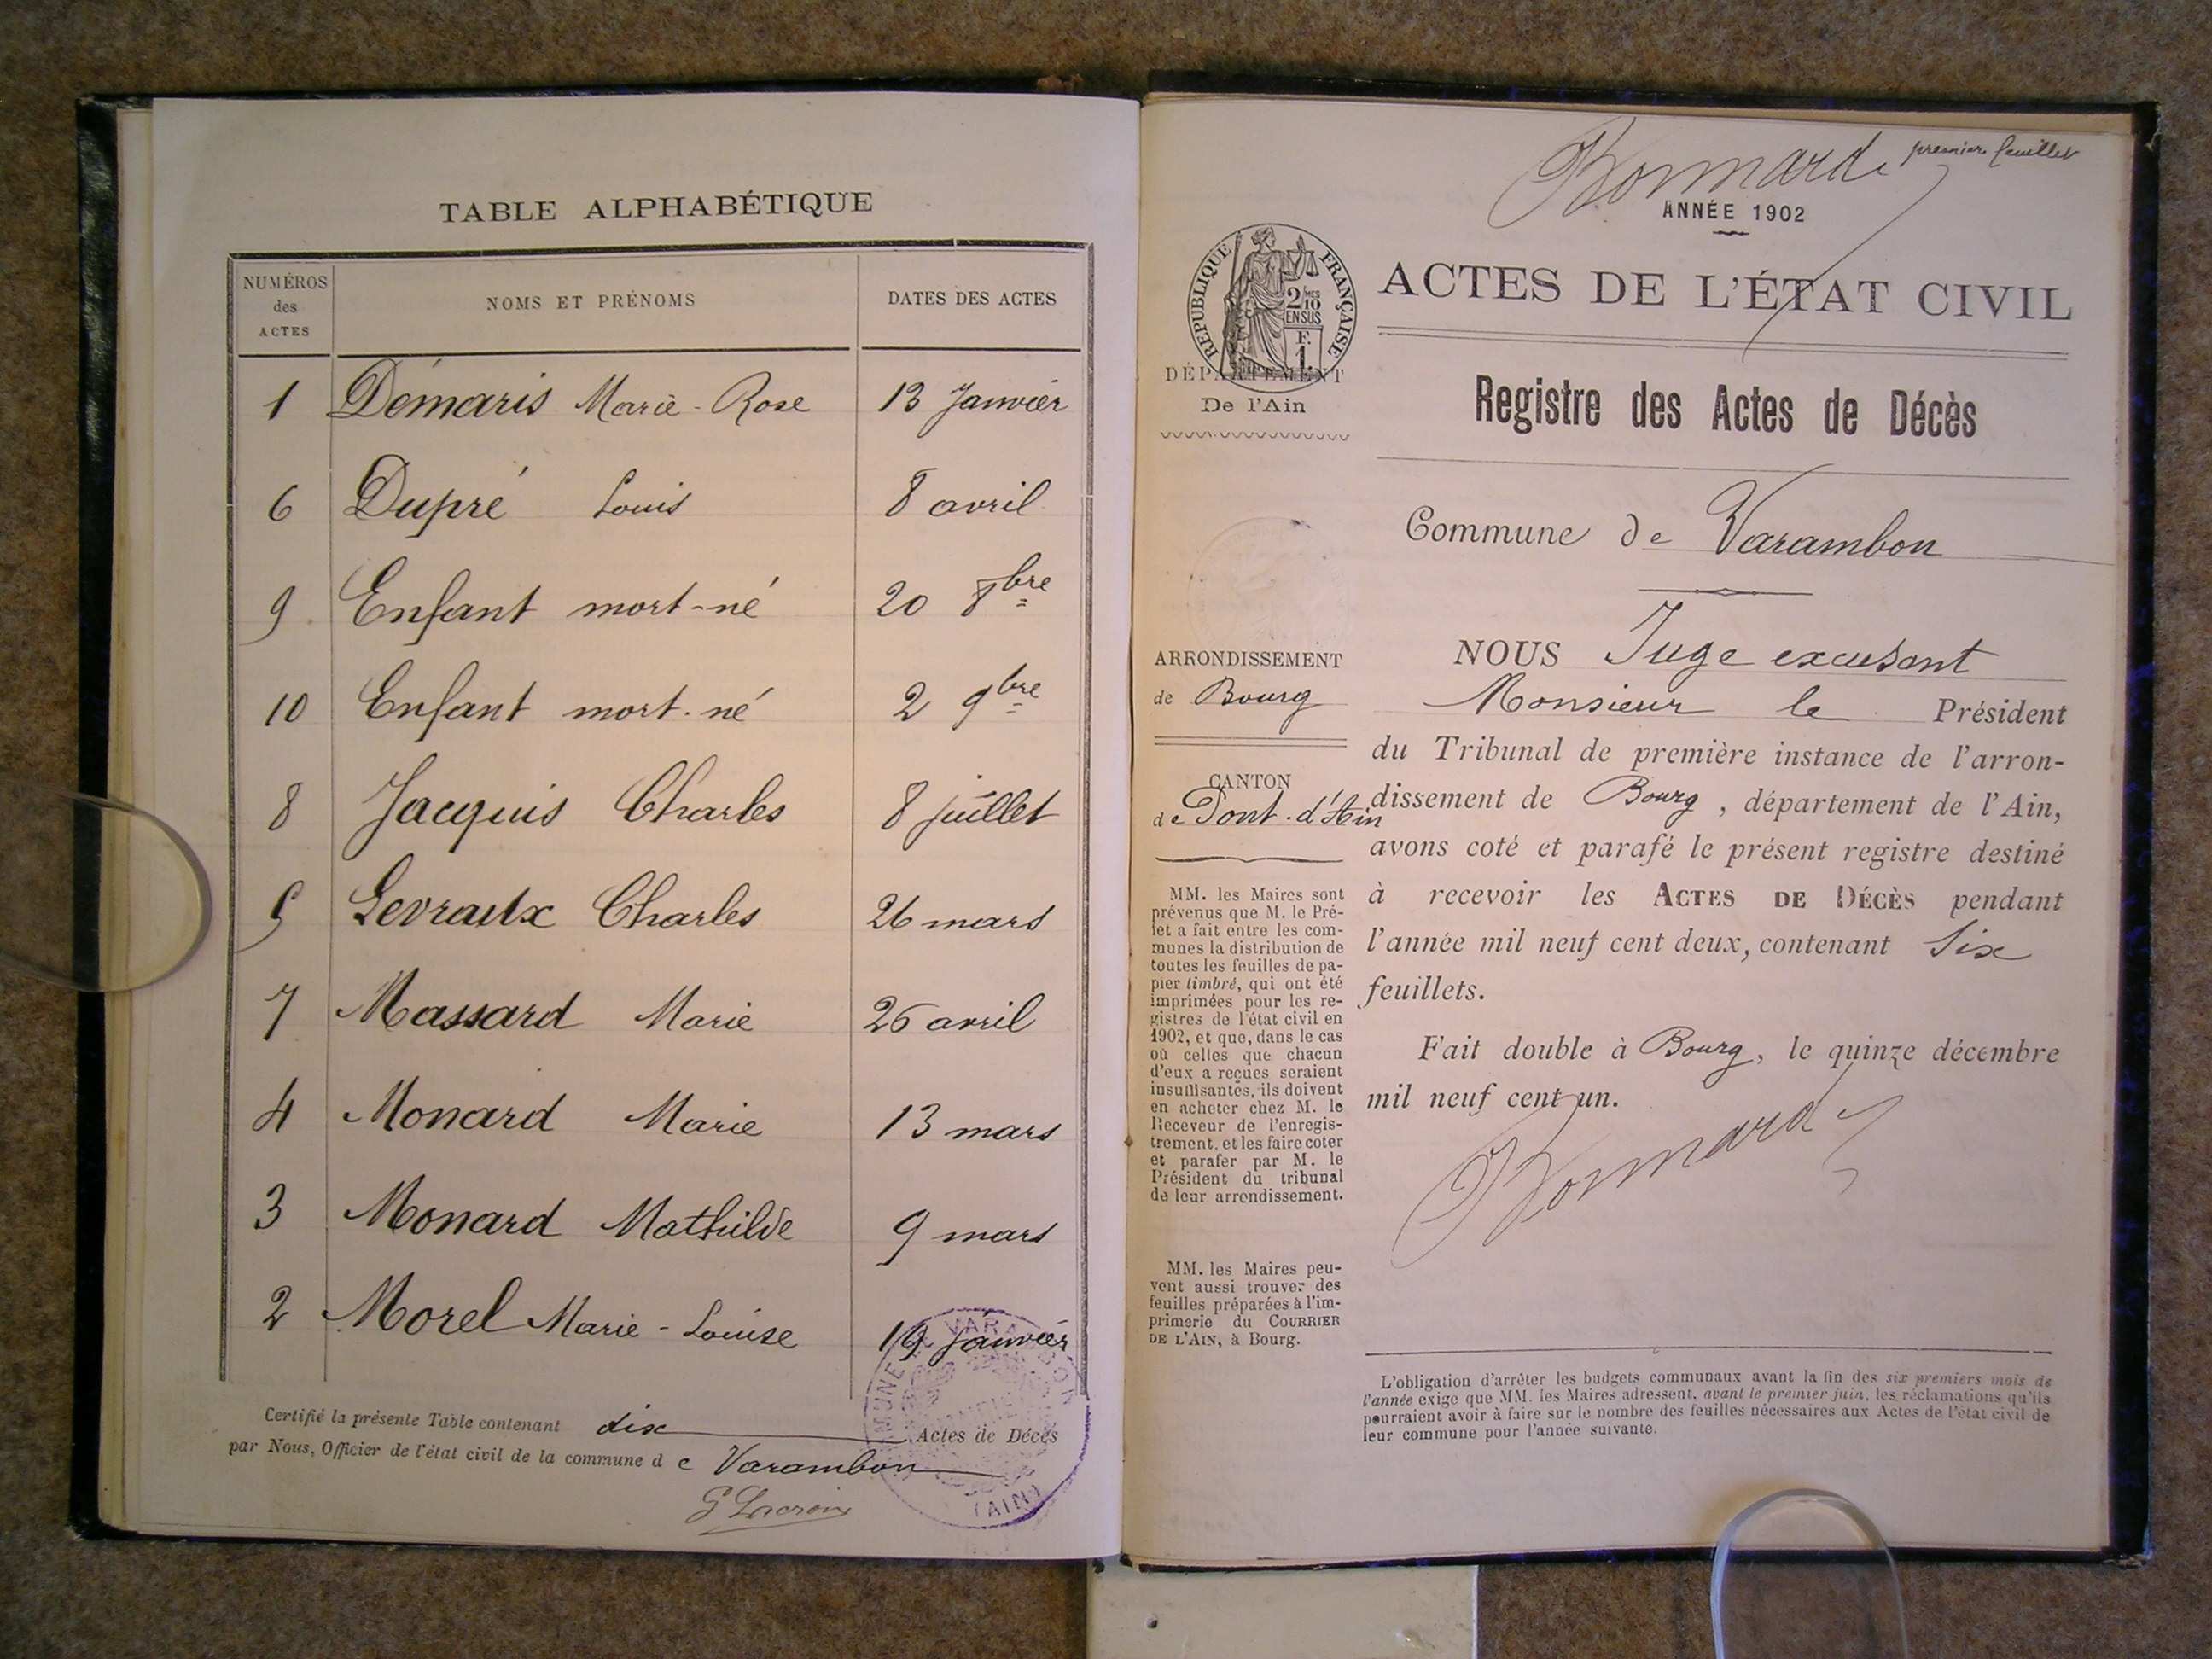 TABLE ALPHABÉTIQUE
NUMÉROS des ACTES NOMS ET PRÉNOMS DATES DES ACTES
1 Démaris Marie-Rose 13 Janvier
6 Dupré Louis 8 avril
9 Enfant mort-né 20 8bre
10 Enfant mort-né 2 9bre
8 Jacquis Charles 8 juillet
5 Levraux Charles 26 mars
7 Massard Marie 26 avril
4 Monard Marie 13 mars
3 Monard Mathilde 9 mars
2 Morel Marie-Louise 19 janvier
Certifié la présente Table contenant dix Actes de Décès
par Nous, Officier de l'état civil de la commune de Varambon
G Lacroix
(AIN)
premier feuillet
ANNÉE 1902
RÉPUBLIQUE FRANÇAISE
2/10MES
EN SUS
F.
1.
ACTES DE L'ÉTAT CIVIL
DÉPARTEMENT
De l'Ain
Registre des Actes de Décès
Commune de Varambon
ARRONDISSEMENT
de Bourg
CANTON
de Pont-d'Ain
MM. les Maires sont
prévenus que M. le Pré-
fet a fait entre les com-
munes la distribution de
toutes les feuilles de pa-
pier timbré, qui ont été
imprimées pour les re-
gistres de l'état civil en
1902, et que, dans le cas
où celles que chacun
d'eux a reçues seraient
insuffisantes, ils doivent
en acheter chez M. le
Receveur de l'enregis-
trement, et les faire coter
et parafer par M. le
Président du tribunal
de leur arrondissement.
MM. les Maires peu-
vent aussi trouver des
feuilles préparées à l'im-
primerie du COURRIER
DE L'AIN, à Bourg.
NOUS Juge excusant
Monsieur le Président
du Tribunal de première instance de l'arron-
dissement de Bourg, département de l'Ain,
avons coté et parafé le présent registre destiné
à recevoir les ACTES DE DÉCÈS pendant
l'année mil neuf cent deux, contenant Six
feuillets.
Fait double à Bourg, le quinze décembre
mil neuf cent un.
L'obligation d'arrêter les budgets communaux avant la fin des six premiers mois de
l'année exige que MM. les Maires adressent, avant le premier juin, les réclamations qu'ils
pourraient avoir à faire sur le nombre des feuilles nécessaires aux Actes de l'état civil de
leur commune pour l'année suivante.